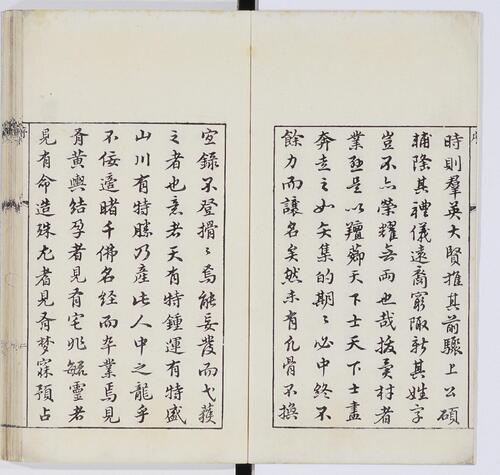 時則羣英大賢推其前驅上公碩
輔隆其禮儀遠裔窮陬新其姓字
豈不亦榮耀無兩也哉拔異材者
業至是以羶薌天下士天下士盡
奔走之如矢集的期〻必中終不
餘力而讓名矣然未有凡骨不換
空錄不登搰〻焉能妄發而弋獲
之者也意者天有特鍾運有特盛
山川有特勝乃產此人中之龍乎
不佞遍睹千佛名經而卒業焉見
胥黃輿結孕者見胥宅兆毓靈者
見有命造殊尤者見胥夢寐預占